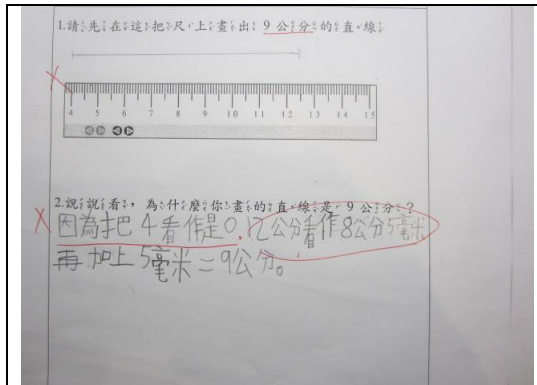 1.請先在這把尺上畫出 9 公分的直線
4 5 6 7 8 9 10 11 12 13 14 15
2.說說看,為什麼你畫的直線是 9 公分?
因為把 4 看作是0,12公分看作8公分5毫米
再加上5毫米=9公分。